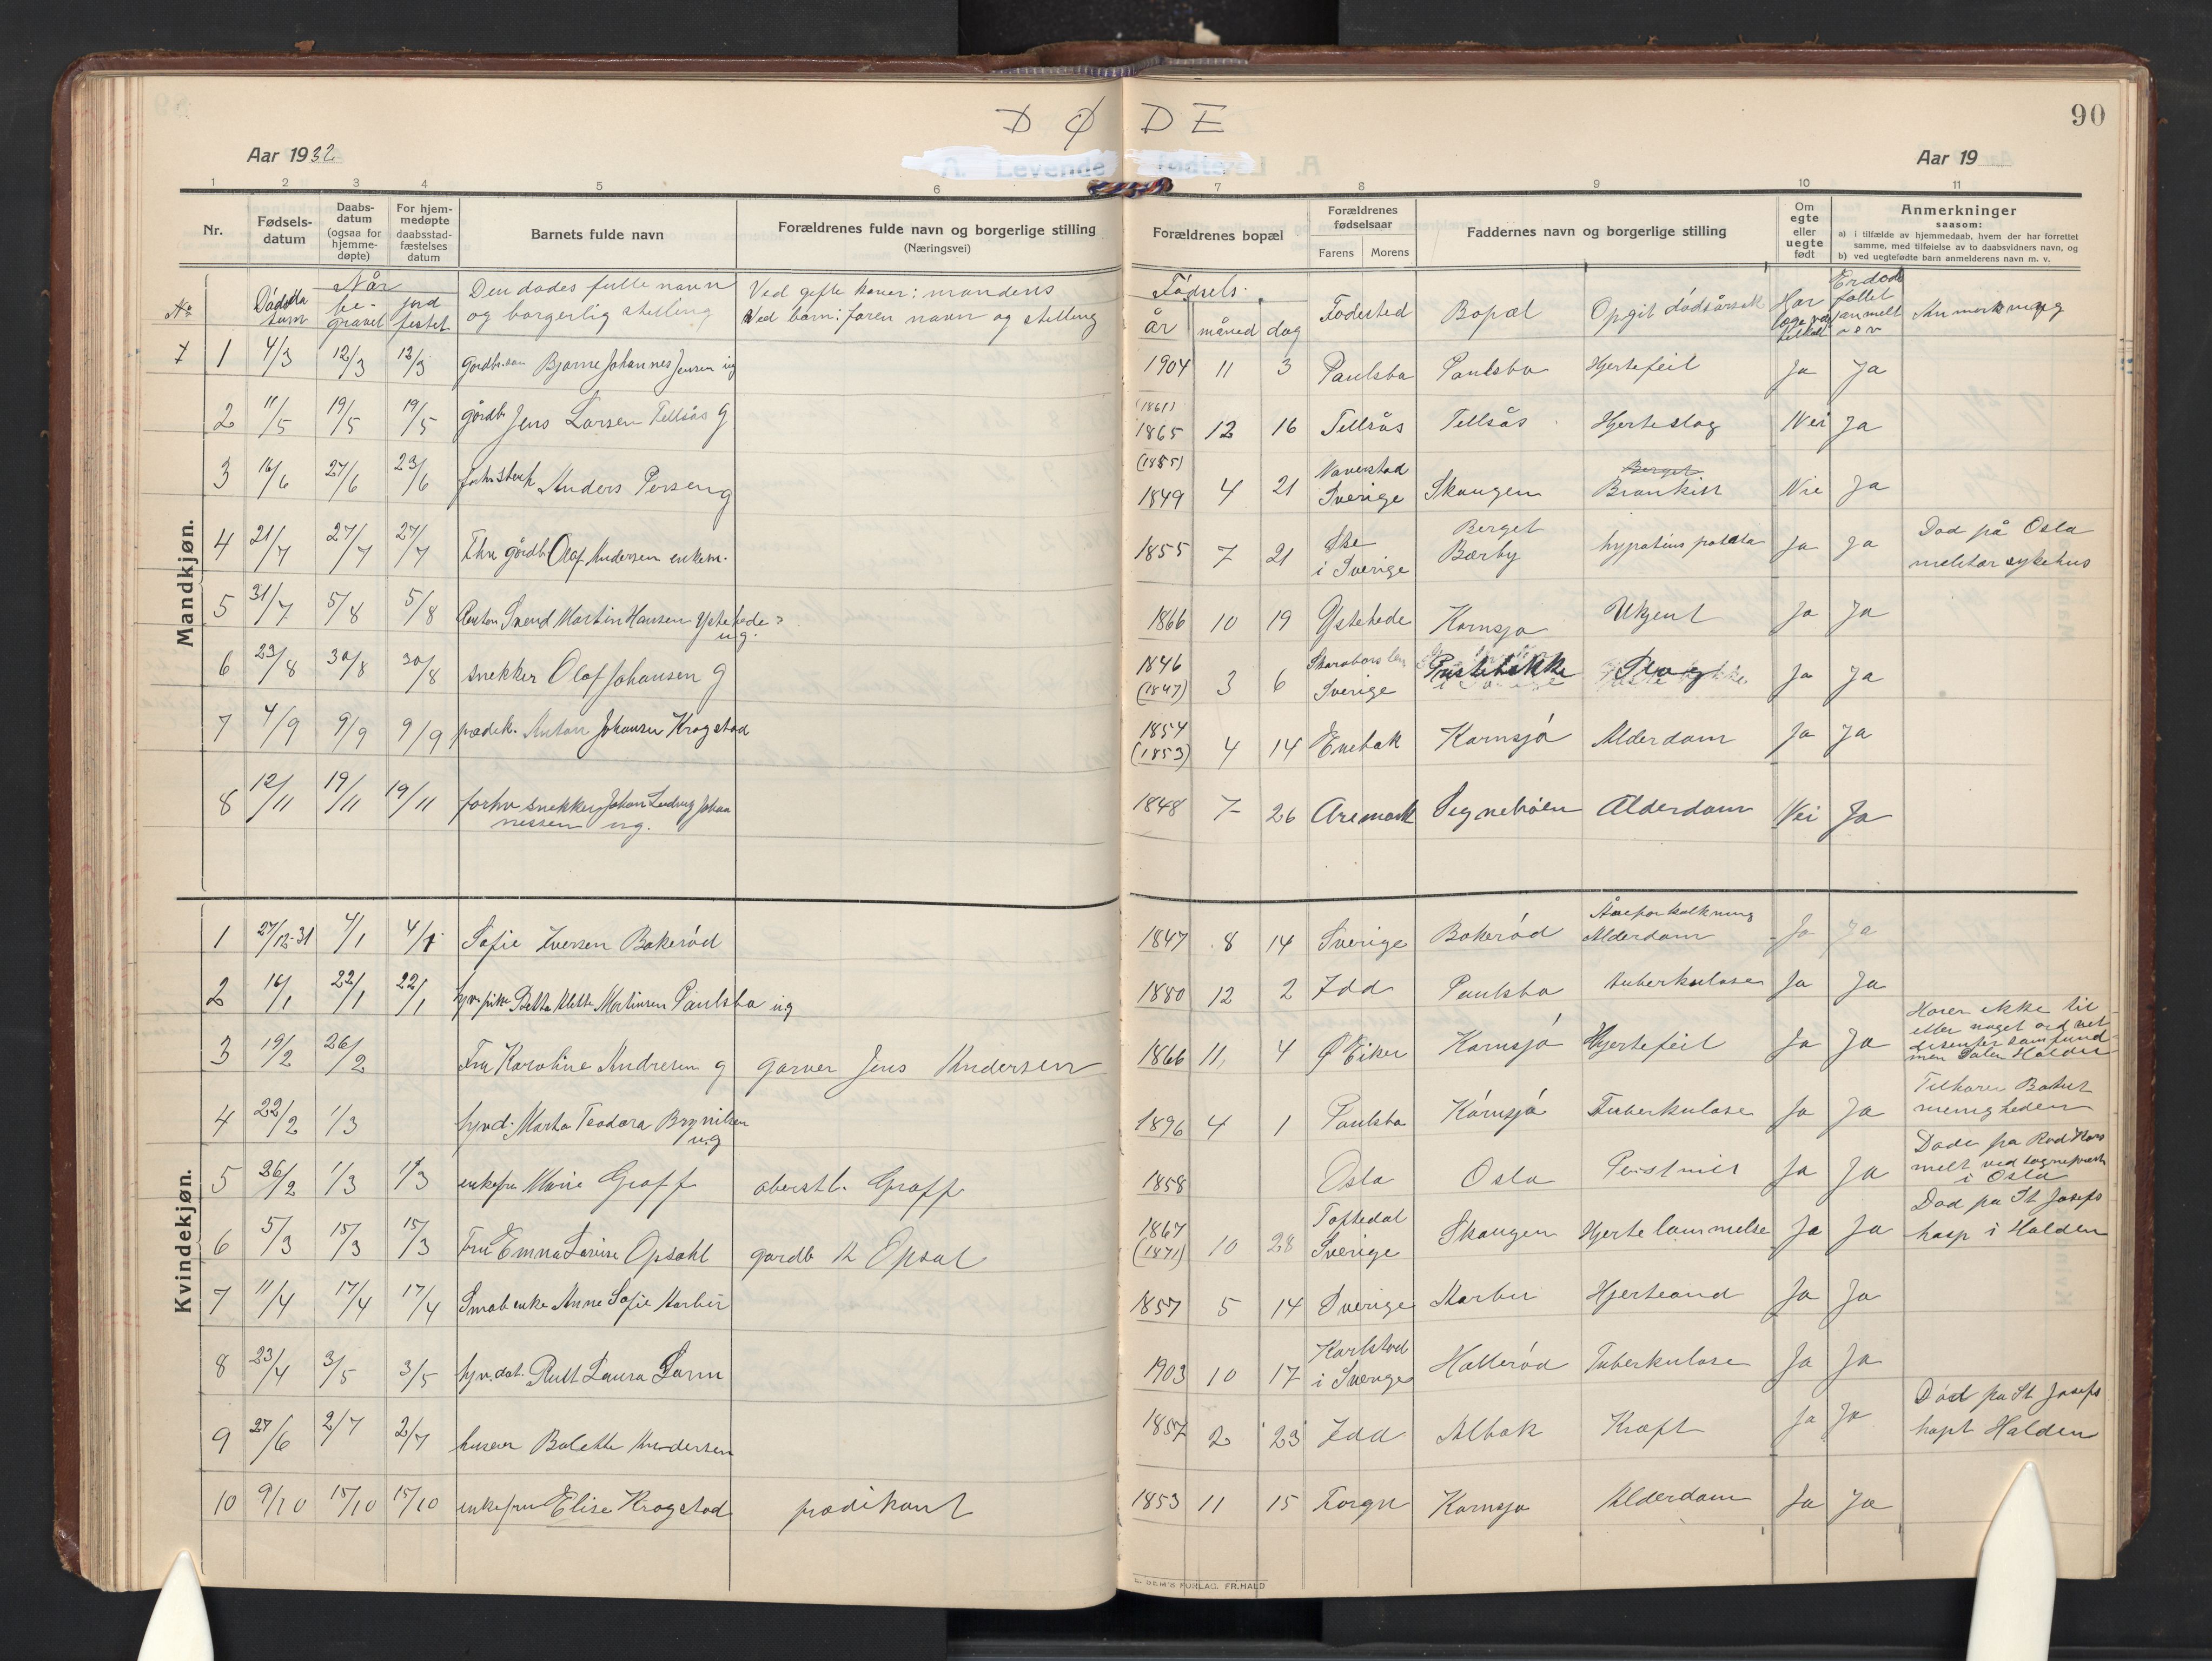 D Ø D E
90
Aar 1932
Aar 19
A. Levende fødte.
1 2 3 4 5 6 7 8 9 10 11
Nr. Fødsels-datum Daabs-datum (ogsaa for hjemme-døpte) For hjem-medøpte daabsstad-fæstelses datum Barnets fulde navn Forældrenes fulde navn og borgerlige stilling (Næringsvei) Forældrenes bopæl Forældrenes fødselsaar Farens Morens Faddernes navn og borgerlige stilling Om egte eller uegte født Anmerkninger saasom:
a) i tilfælde av hjemmedaab, hvem der har forrettet samme, med tilføielse av to daabsvidners navn, og
b) ved uegtefødte barn anmelderens navn m. v.
No Dødsdatum Når begravet jordfestet Den dødes fulle navn og borgerlig stilling Ved gifte koner: mandens Ved barn: faren navn og stilling Fødsels- år måned dag Fødested Bopæl Opgit dødsårsak Har læge tilkalt Er dødsfallet anmelt Anmerkning
Mandkjøn.
1 4/3 12/3 12/3 gårdbr. søn Bjarne Johannes Jensen ug 1904 11 3 Paulsbo Paulsbo Hjertefeil Ja Ja
2 11/5 19/5 19/5 gårdb. Jens Larsen Tellsås g (1861) 1865 12 16 Tellsås Tellsås Hjerteslag Nei Ja
3 16/6 27/6 23/6 Anders Persen g (1855) 1849 4 21 Naverstad Sverige Skaugen Ja
4 21/7 27/7 27/7 Fhv gårdb. Olaf Andersen enkem. 1855 7 21 i Sverige Berget Bærby Ja Ja Død på Oslo militær sykehus
5 31/7 5/8 5/8 Anton Svend Martin Hansen Ystehede ug. 1866 10 19 Ystehede Kornsjø Ukjent Ja Ja
6 23/8 30/8 30/8 snekker Olaf Johansen g 1846 (1847) 3 6 Sverige Prestebakke Slag Ja Ja
7 4/9 9/9 9/9 prædik. Anton Johansen Krogstad 1854 (1853) 4 14 Enebak Kornsjø Alderdom Ja Ja
8 12/11 19/11 19/11 forhv snekker Johan Ludvig Johannessen ug. 1848 7 26 Aremark Alderdom Nei Ja
Kvindekjøn.
1 27/12-31 4/1 4/1 Sofie Iversen Bokerød 1847 8 14 Sverige Bokerød Åreforkalkning Alderdom Ja Ja
2 16/1 22/1 22/1 Mette Martinsen Paulsbo ug 1880 12 2 Idd Paulsbo tuberkulose Ja Ja
3 19/2 26/2 Fru Karoline Andresen g garver Jens Andersen 1866 11 4 Ø Eiker Kornsjø Hjertefeil Ja Ja Hører ikke til
4 22/2 1/3 Marta Teodora Brynilsen ug 1896 4 1 Paulsbo Kornsjø Tuberkulose Ja Ja Tilhører menigheden
5 26/2 1/3 1/3 enkefru Marie Graff oberstl. Graff 1858 Oslo Oslo Ja Ja Døde på Rød Kors melt ved sogneprest i Oslo
6 5/3 15/3 15/3 Fru Emma Lovise Opsahl gårdb K Opsal 1867 (1871) 10 28 Töftedal Sverige Skaugen Hjertelammelse Ja Ja Død på St Josefs hosp i Halden
7 11/4 17/4 17/4 Småb enke Anne Sofie Korbu 1857 5 14 Sverige Korbu Hjerteond Ja Ja
8 23/4 3/5 3/5 Rutt Laura Lorn 1903 10 17 Karlstad i Sverige Hallerød Tuberkulose Ja Ja
9 27/6 2/7 2/7 Bolette Andersen 1857 2 23 Idd Albak Kræft Ja Ja Død på St Josefs hospt Halden
10 9/10 15/10 15/10 enkefru Elise Krogstad prædikant 1853 11 15 Kornsjø Alderdom Ja Ja
E. SEM'S FORLAG, FR.HALD